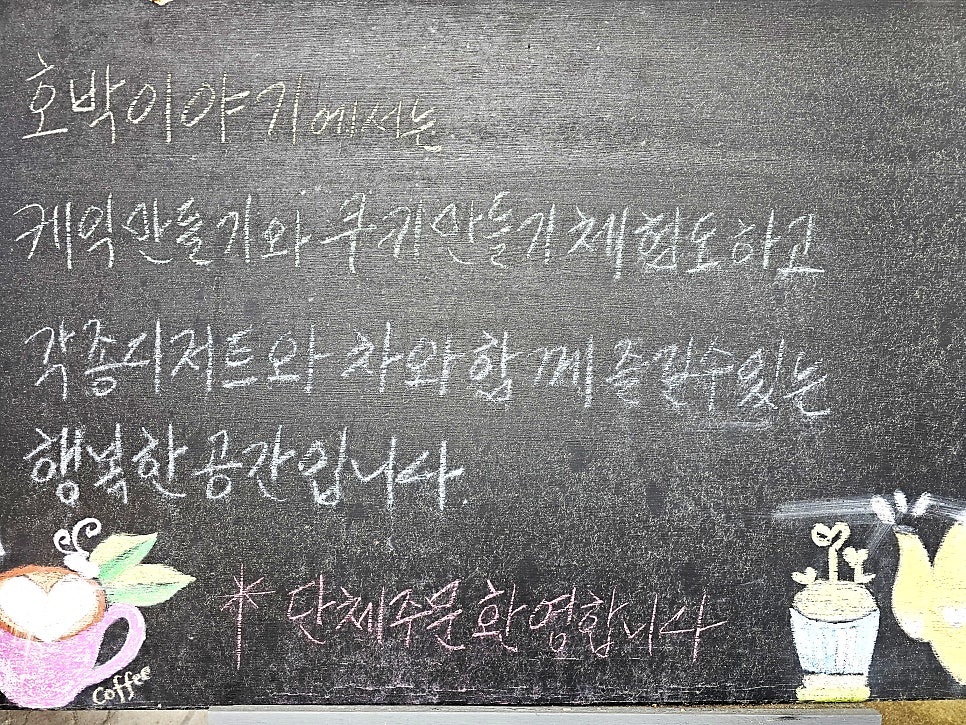 호박이야기에서는
케익만들기와 쿠키만들기 체험도하고
각종디저트와 차와 함께 즐길수있는
행복한 공간입니다.
* 단체주문 환영합니다
coffee